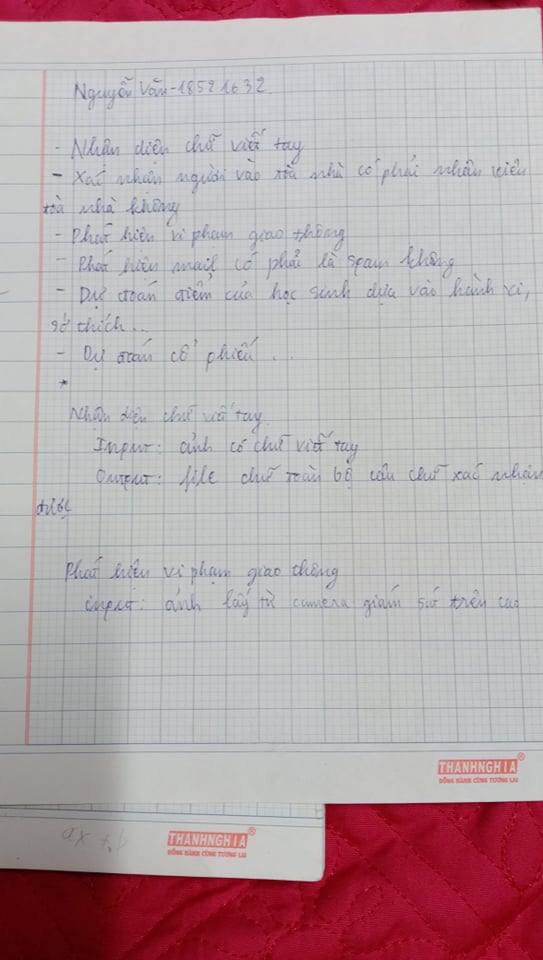 Nguyễn Văn - 18521632
- Nhận diện chữ viết tay
- Xác nhận người vào tòa nhà có phải nhân viên
tòa nhà không
- Phát hiện vi phạm giao thông
- Phát hiện mail có phải là spam không
- Dự đoán điểm của học sinh dựa vào hành vi,
sở thích...
- Dự đoán cổ phiếu...
*
Nhận diện chữ viết tay
Input: ảnh có chữ viết tay
Output: file chứ toàn bộ câu chữ xác nhận
được
Phát hiện vi phạm giao thông
input: ảnh lấy từ camera giám sát trên cao
THANHNGHIA®
ĐỒNG HÀNH CÙNG TƯƠNG LAI
THANHNGHIA®
ĐỒNG HÀNH CÙNG TƯƠNG LAI